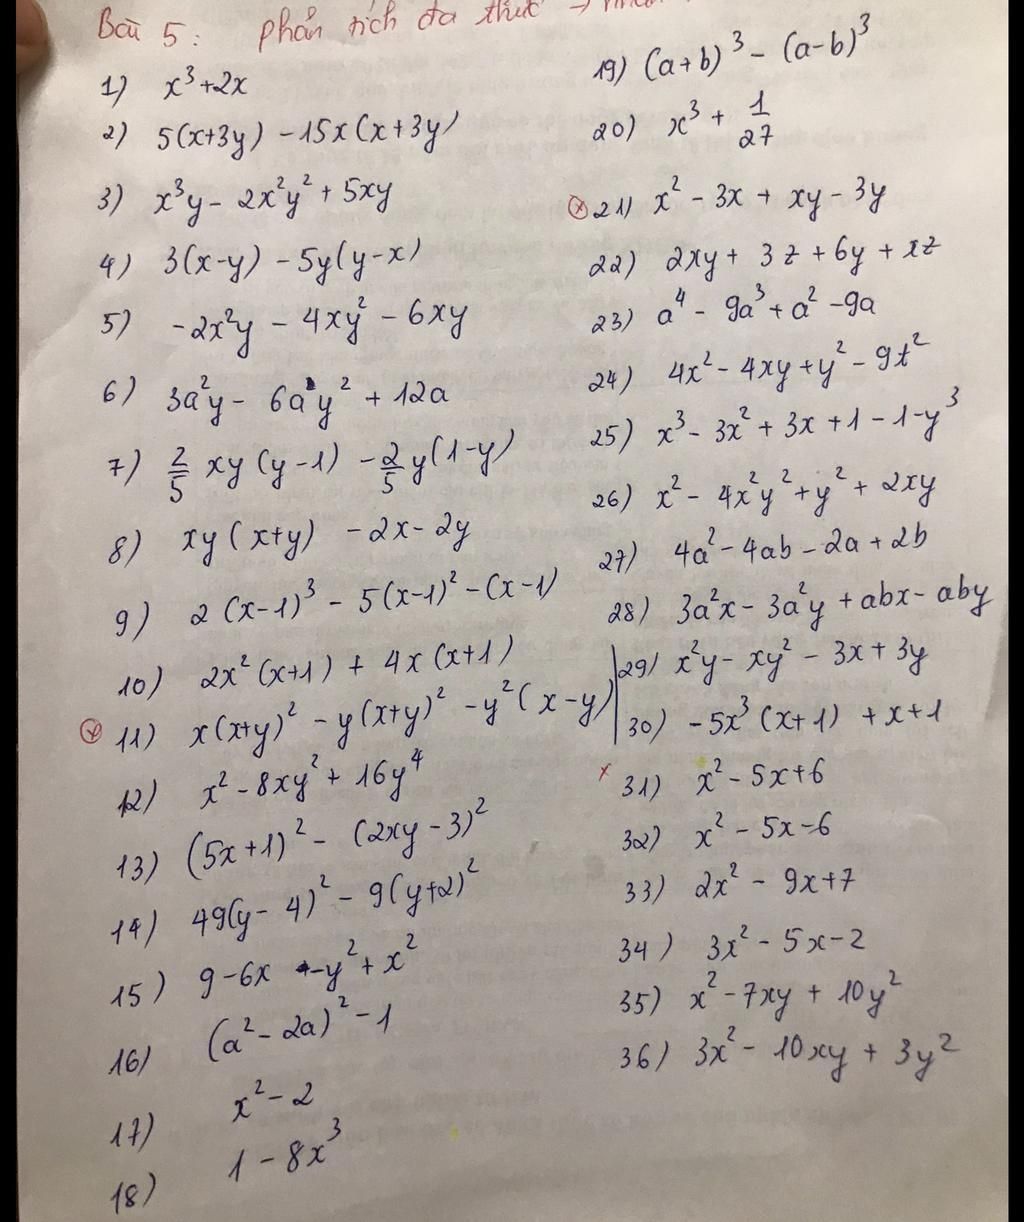 Bài 5: phân tích đa thức →
1) x³+2x
2) 5(x+3y) -15x(x+3y)
3) x³y - 2x²y² + 5xy
4) 3(x-y) - 5y(y-x)
5) -2x²y - 4xy² - 6xy
6) 3a²y - 6a y² + 12a
7) 2/5 xy (y-1) - 2/5 y(1-y)
8) xy (x+y) - 2x - 2y
9) 2 (x-1)³ - 5(x-1)² - (x-1)
10) 2x² (x+1) + 4x (x+1)
11) x(x+y)² - y(x+y)² - y² (x-y)
12) x² - 8xy² + 16y⁴
13) (5x+1)² - (2xy-3)²
14) 49(y-4)² - 9(y+2)²
15) 9-6x -y² + x²
16) (a² - 2a)² - 1
17) x² - 2
18) 1 - 8x³
19) (a+b)³ - (a-b)³
20) x³ + 1/27
21) x² - 3x + xy - 3y
22) 2xy + 3z + 6y + xz
23) a⁴ - 9a³ + a² - 9a
24) 4x² - 4xy + y² - 9t²
25) x³ - 3x² + 3x + 1 - 1 - y³
26) x² - 4x²y² + y² + 2xy
27) 4a² - 4ab - 2a + 2b
28) 3a²x - 3a²y + abx - aby
29) x²y - xy² - 3x + 3y
30) -5x³ (x+1) + x+1
31) x² - 5x+6
32) x² - 5x-6
33) 2x² - 9x+7
34) 3x² - 5x-2
35) x² - 7xy + 10y²
36) 3x² - 10xy + 3y²